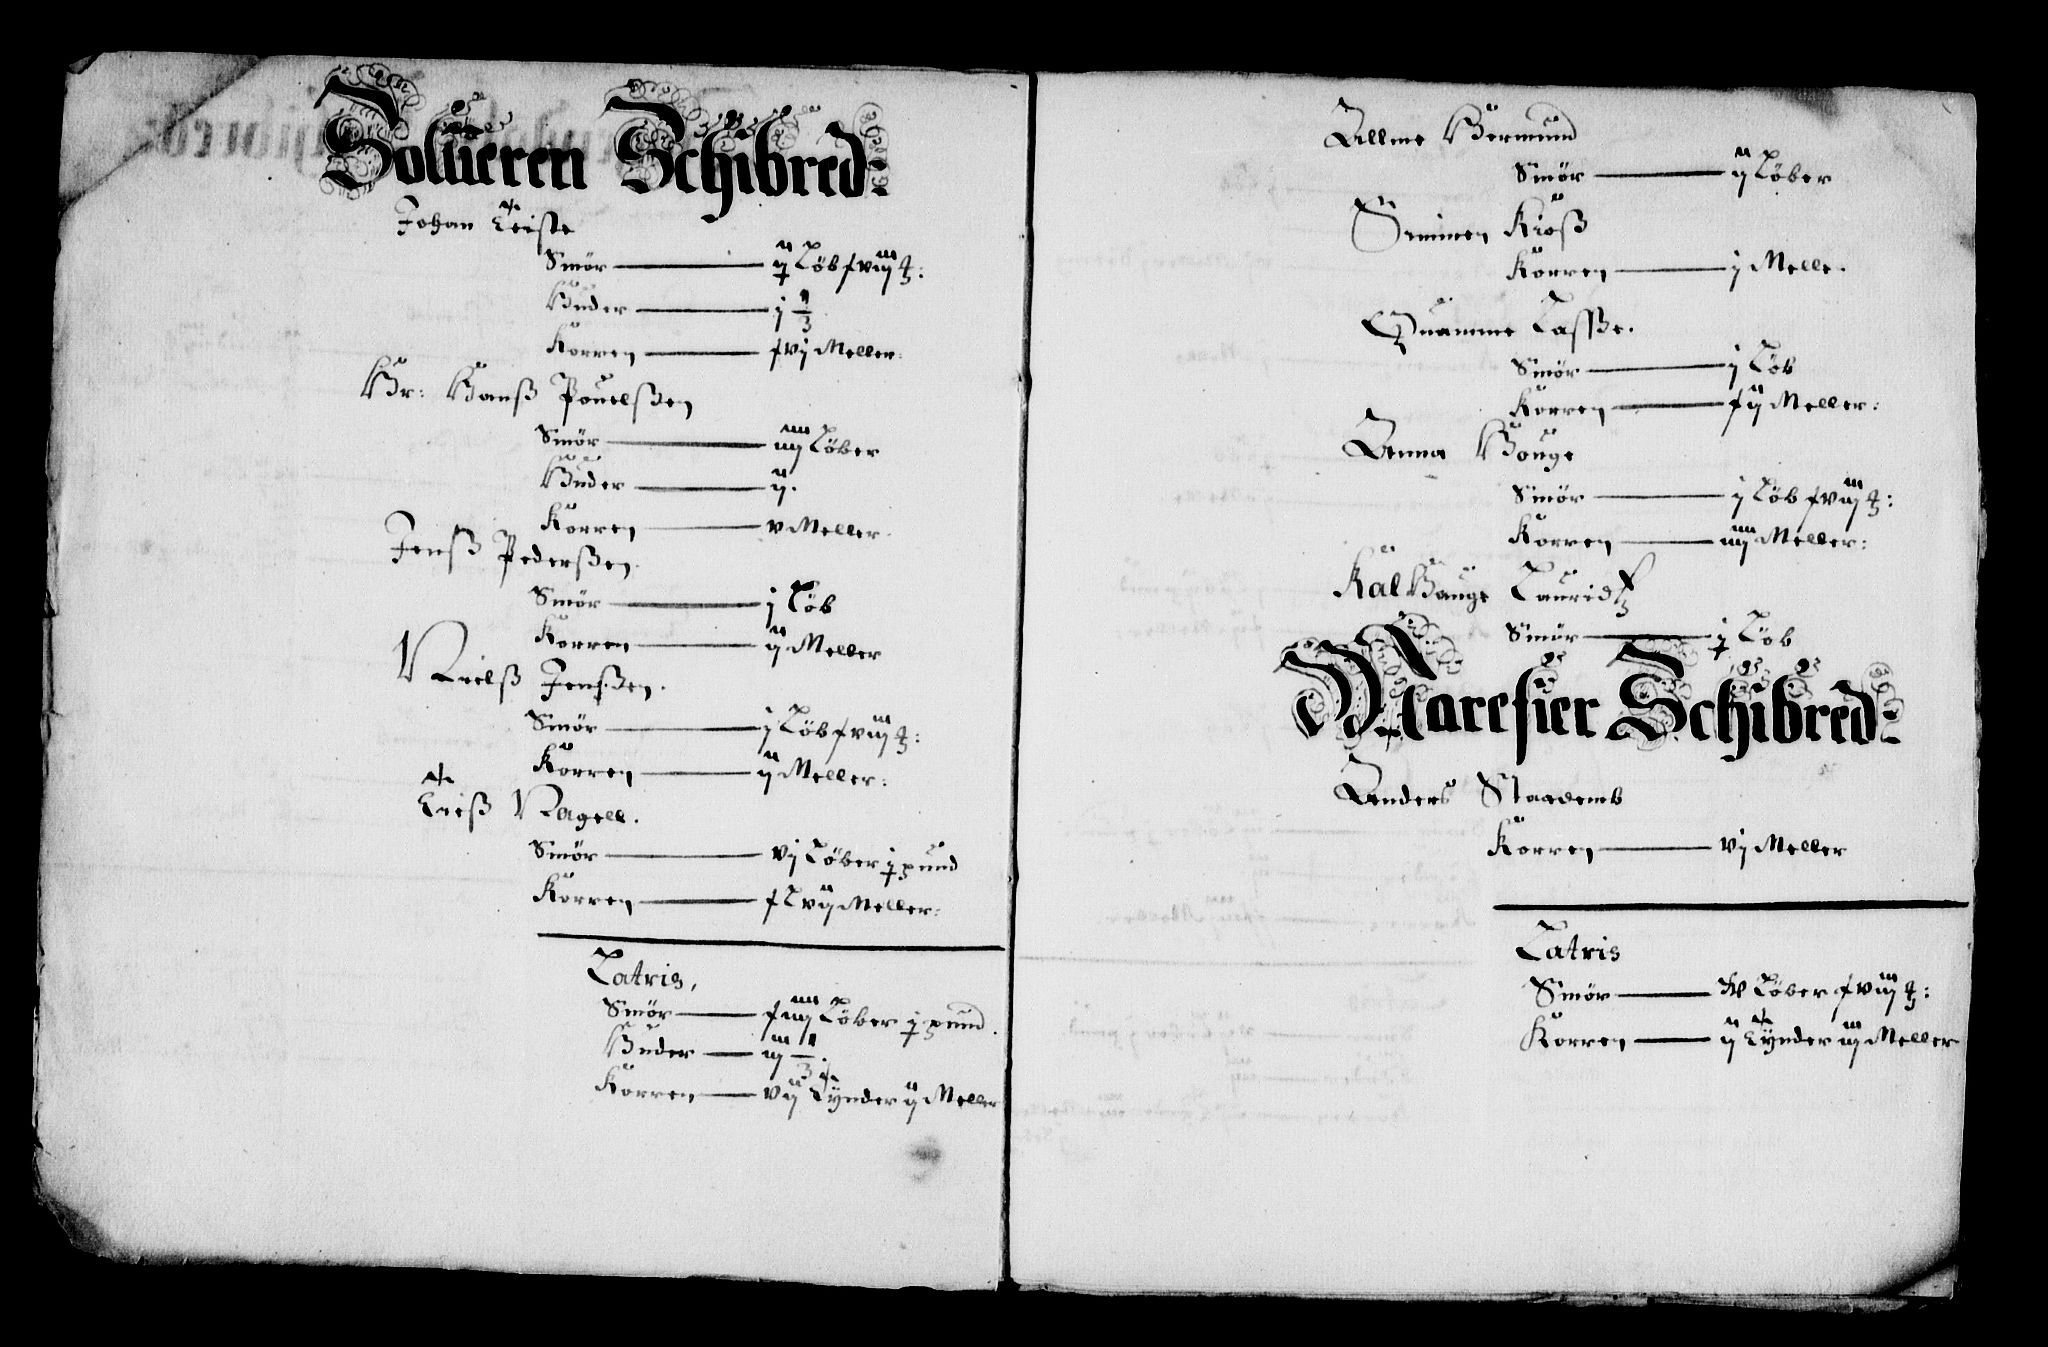 Solueren Schibred:
Johan Teiste
Smör — ij Löb xviij ℔:
Huder — j 1/3
Korren — xvj Meller:
Hr: Hanß Pouelßen
Smör — iiij Löber
Huder — ij.
Korren — v Meller.
Jenß Pederßen.
Smör — j Löb
Korren — ij Meller
Nielß Jenßen.
Smör — j Löb xviij ℔:
Korren — ij Meller:
Triß Nagell.
Smör — vj Löber j pund
Korren — xlvij Meller:
Latris,
Smör — xiiij Löber j pund.
Huder — iij 1/3.
Korren — vij Tynder ij Meller
Allme Hermund
Smör — ij Löber
Kröß
Korren — j Melle.
Quamme Lasße.
Smör — j Löb
Korren — xij Meller:
Anna Houge
Smör — j Löb xviij ℔:
Korren — iiij Meller:
Kal Hauge Lauridtz
Smör — j Löb
Marefier Schibred:
Anders Staademb
Korren — vj Meller
Latris
Smör — v Löber xviij ℔:
Korren — ij Tynder iij Meller